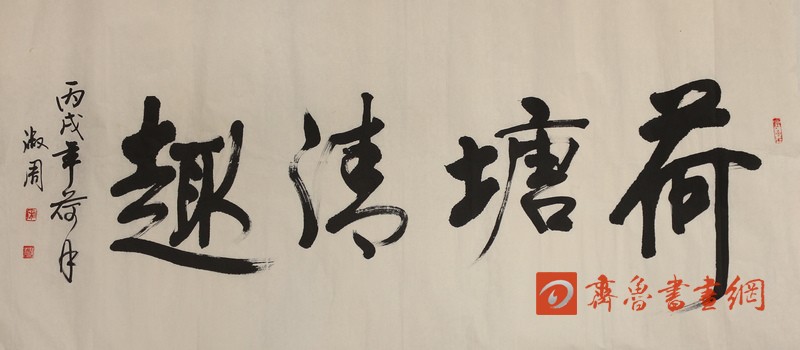 荷塘清趣
丙戌年荷月
淑周
齊魯書畫網